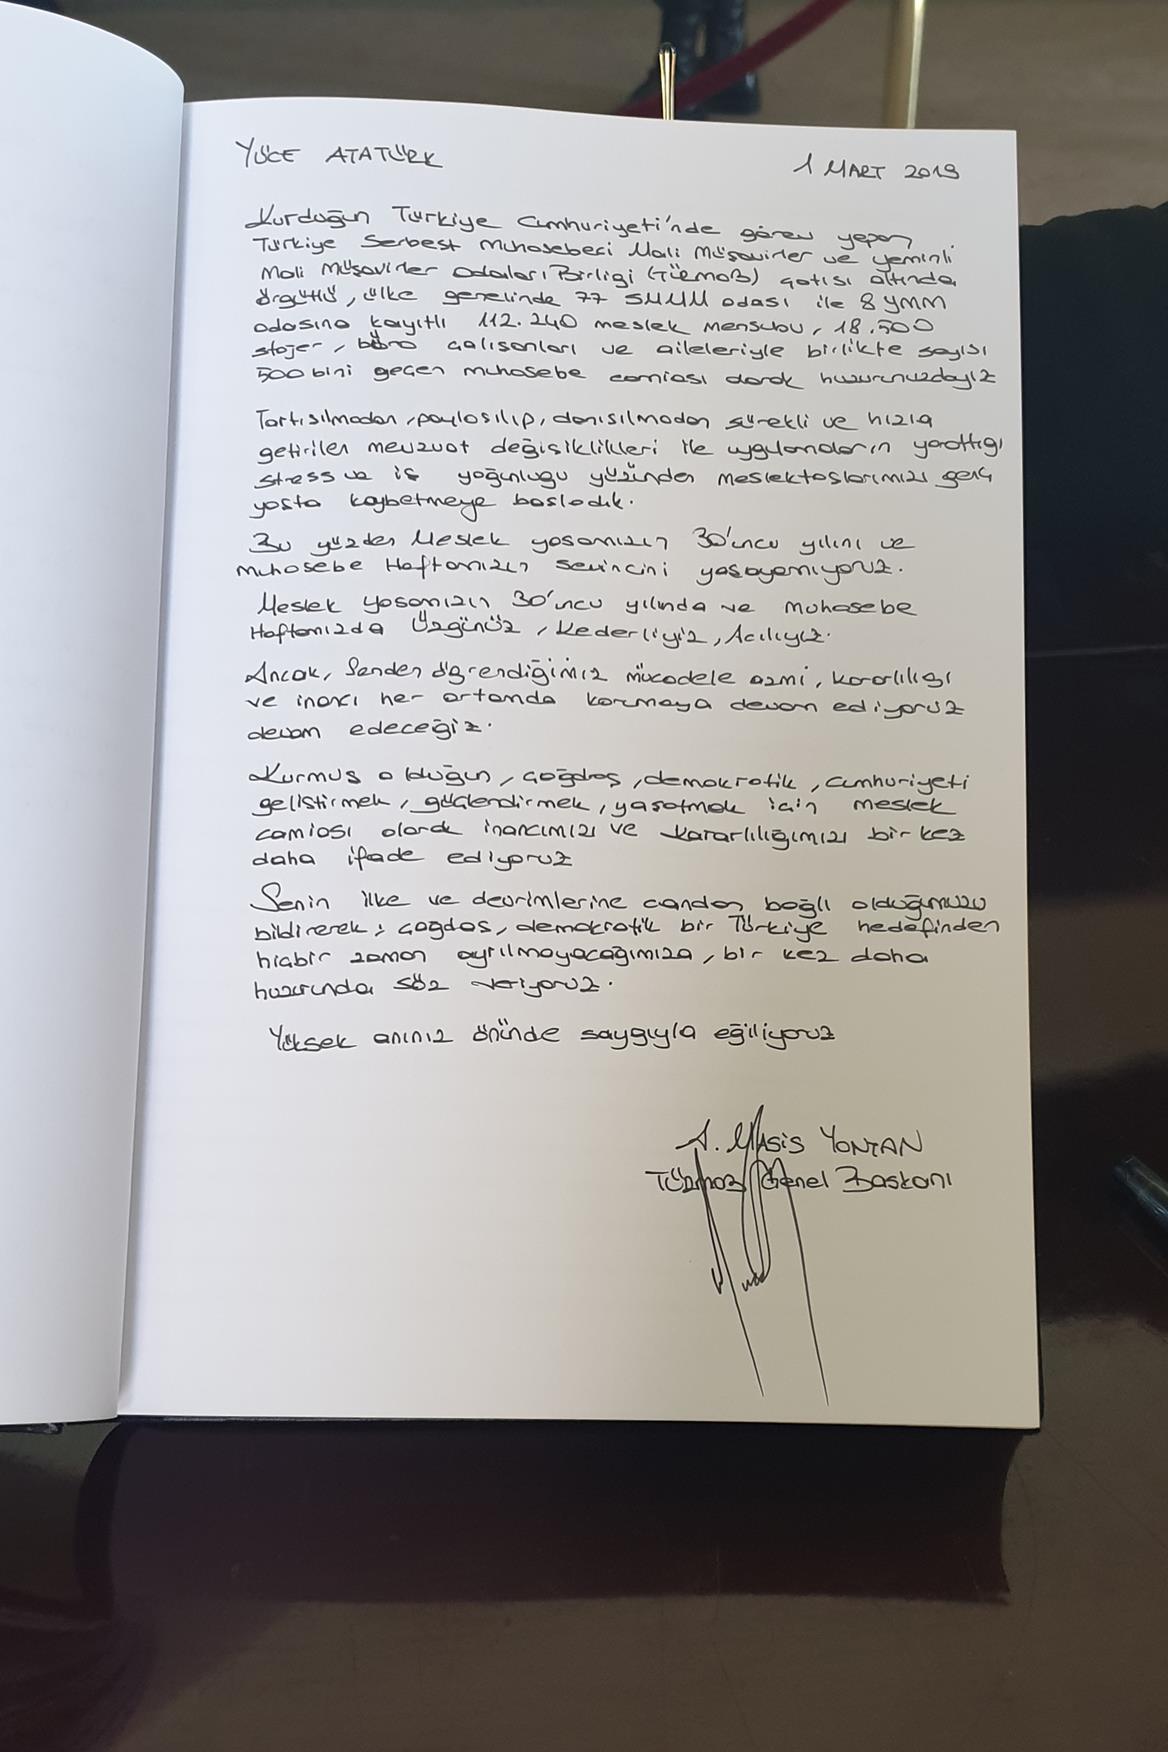 YÜCE ATATÜRK
1 MART 2019
Kurduğun Türkiye Cumhuriyeti'nde görev yapan
Türkiye Serbest Muhasebeci Mali Müşavirler ve yeminli
Mali Müşavirler Odaları Birliği (TÜRMOB) çatısı altında
örgütlü, ülke genelinde 77 SMMM odası ile 8 YMM
odasına kayıtlı 112.240 meslek mensubu, 18.500
stajer, büro çalışanları ve aileleriyle birlikte sayısı
500 bini geçen muhasebe camiası olarak huzurunuzdayız
Tartışılmadan, paylaşılıp, danışılmadan sürekli ve hızla
getirilen mevzuat değişiklikleri ile uygulamaların yarattığı
stress ve iş yoğunluğu yüzünden meslektaşlarımızı genç
yaşta kaybetmeye başladık.
Bu yüzden Meslek yasamızın 30'uncu yılını ve
muhasebe Haftamızın sevincini yaşayamıyoruz.
Meslek yasamızın 30'uncu yılında ve muhasebe
Haftamızda Üzgünüz, Kederliyiz, Acılıyız.
Ancak, Senden öğrendiğimiz mücadele azmi, kararlılığı
ve inancı her ortamda korumaya devam ediyoruz
devam edeceğiz.
Kurmuş olduğun, çağdaş, demokratik, cumhuriyeti
geliştirmek, güçlendirmek, yaşatmak için meslek
camiası olarak inancımızı ve kararlılığımızı bir kez
daha ifade ediyoruz
Senin ilke ve devrimlerine candan bağlı olduğumuzu
bildirerek; çağdaş, demokratik bir Türkiye hedefinden
hiçbir zaman ayrılmayacağımıza, bir kez daha
huzurunda söz veriyoruz.
Yüksek anınız önünde saygıyla eğiliyoruz
A. Masis YONTAN
TÜRMOB Genel Başkanı